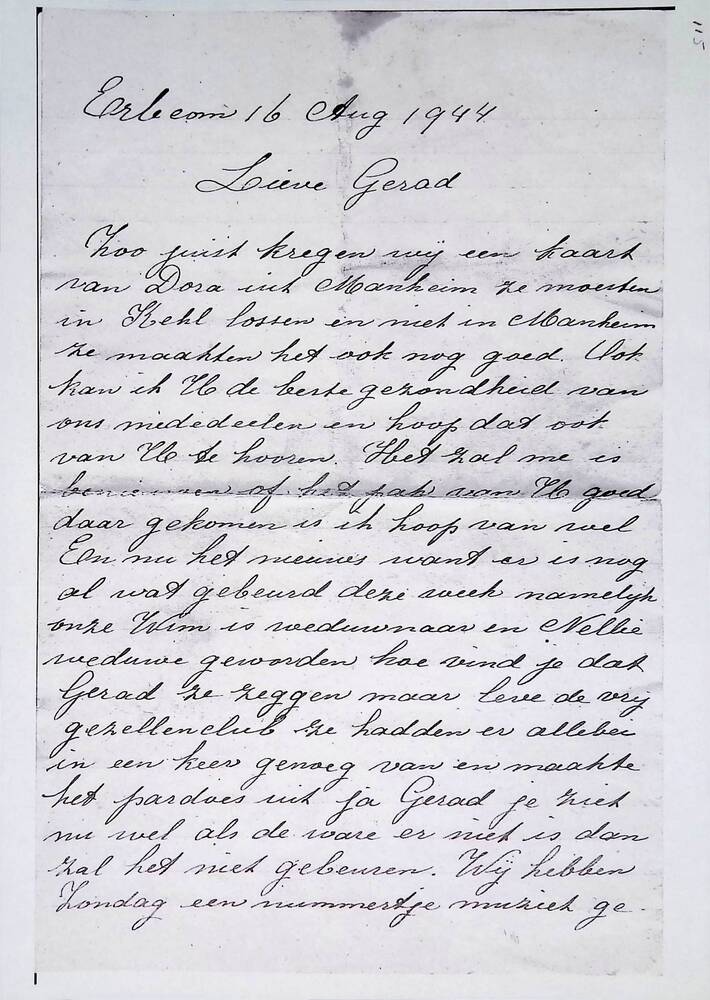 115
Erlecom 16 Aug 1944
Lieve Gerad
Zoo juist kregen wij een kaart
van Dora uit Manheim ze moesten
in Kehl lossen en niet in Manheim
ze maakten het ook nog goed. Ook
kan ik U de beste gezondheid van
ons mededeelen en hoop dat ook
van U te hooren. Het zal me is
benieuwen of het pak van U goed
daar gekomen is ik hoop van wel
En nu het nieuws want er is nog
al wat gebeurd deze week namelijk
onze Wim is weduwnaar en Nellie
weduwe geworden hoe vind je dat
Gerad ze zeggen maar leve de vrij
gezellenclub ze hadden er allebei
in een keer genoeg van en maakte
het pardoes uit ja Gerad je ziet
nu wel als de ware er niet is dan
zal het niet gebeuren. Wij hebben
Zondag een nummertje muziek ge-